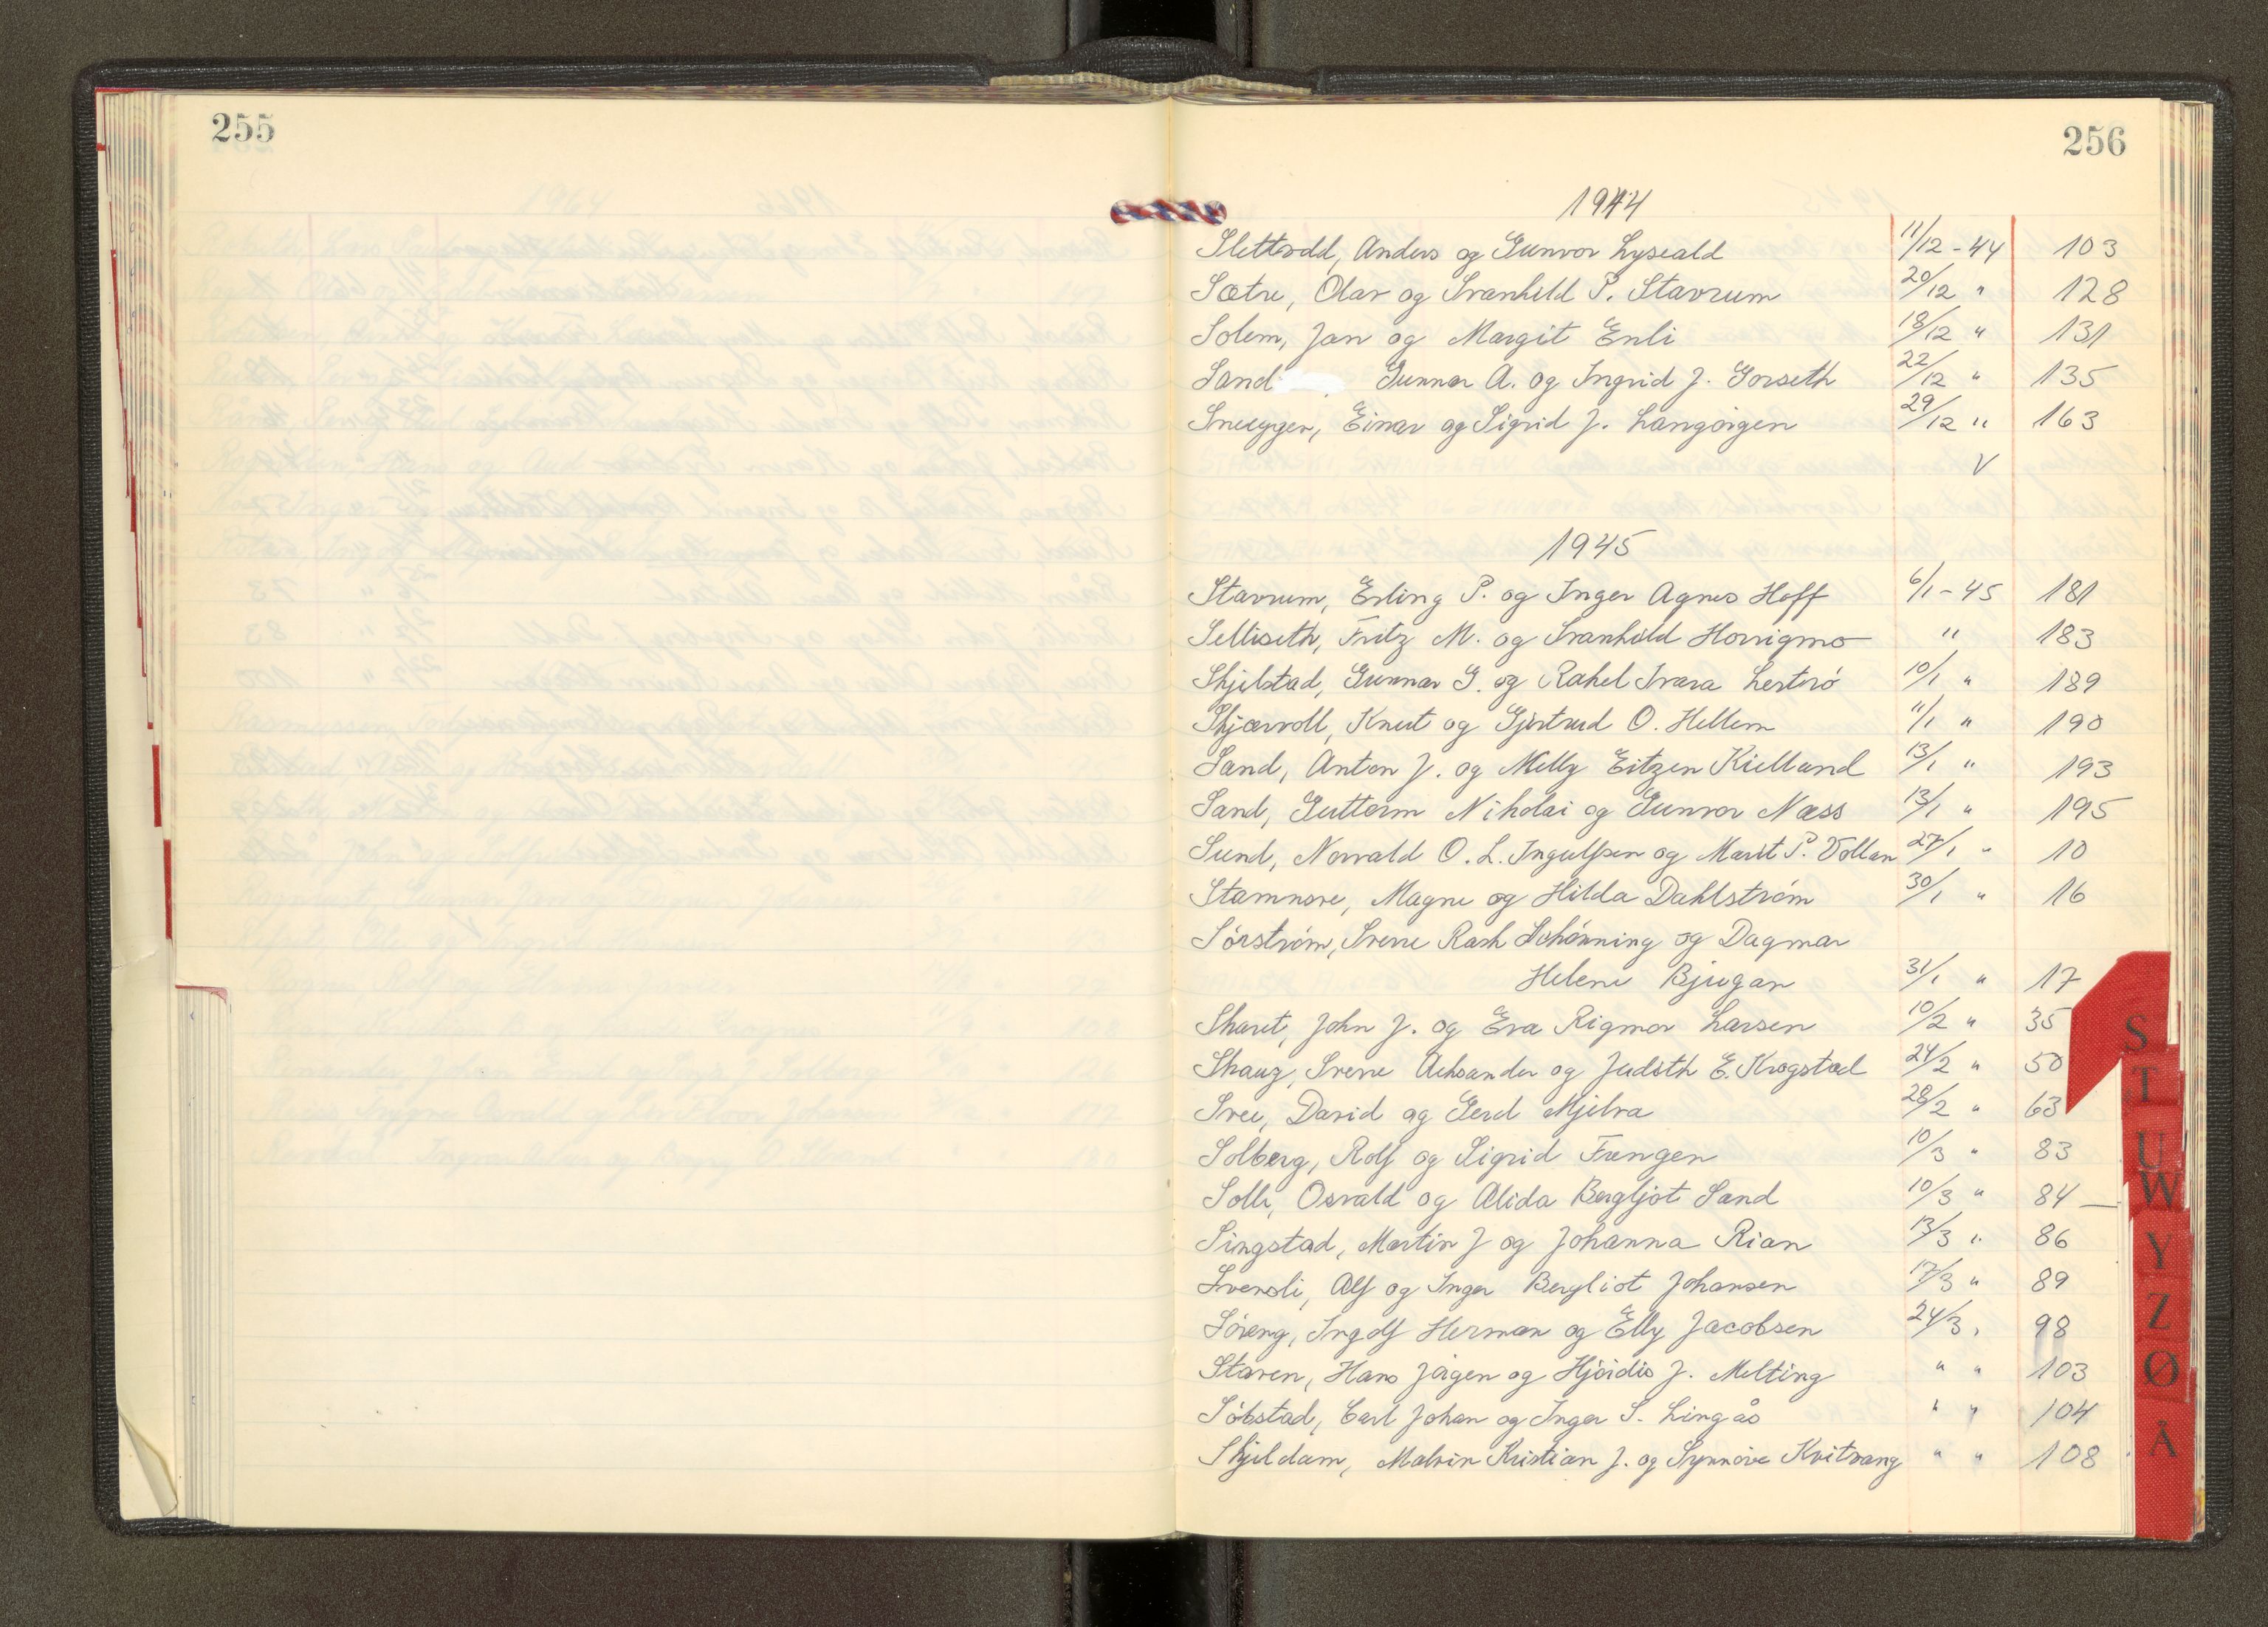 255
256
1944
Slettvold, Anders og Gunvor Lyseald 11/12 - 44 103
Sætre, Olav og Svanhild P. Stavrum 20/12 " 128
Solem, Jan og Margit Enli 18/12 " 131
Sand Gunnar A. og Ingrid J. Gorseth 22/12 " 135
Snuggen, Einar og Sigrid J. Langörgen 29/12 " 163
V
1945
Stavrum, Erling P. og Inger Agnes Hoff 6/1 - 45 181
Selliseth, Fritz M. og Svanhild Horrigmo " 183
Skjelstad, Gunnar G. og Rakel Ivara Lerterö 10/1 " 189
Skjærvoll, Knut og Gjertrud O. Hellem 11/1 " 190
Sand, Anton J. og Melly Eitzen Kielland 13/1 " 193
Sand, Guttorm Nikolai og Gunvor Næss 13/1 " 195
Sund, Norvald O. L. Ingulfsen og Marit P. Vollan 27/1 " 10
Stamnore, Magne og Hilda Dahlström 30/1 " 16
Sörström, Sverre Rash Schönning og Dagmar
Helene Bjugan 31/1 " 17
Skaret, John J. og Eva Rigmor Larsen 10/2 " 35
Skaug, Sverre Aleksander og Judith E. Krogstad 24/2 " 50
Svee, David og Gerd Mjelva 28/2 " 63
Solberg, Rolf og Sigrid Frengen 10/3 " 83
Solli, Osvald og Alida Bergljot Sand 10/3 " 84 —
Singstad, Martin J og Johanna Rian 13/3 " 86
Svensli, Alf og Inger Bergliot Johansen 17/3 " 89
Söreng, Ingolf Herman og Elly Jacobsen 24/3 " 98
Staven, Hans Jörgen og Hjördis J. Melting " " 103
Söbstad, Carl Johan og Inger S. Lingås " " 104
Skjeldam, Malvin Kristian J. og Synnöve Kvitvang " " 108
S
T
U
W
Y
Z
Ø
Å